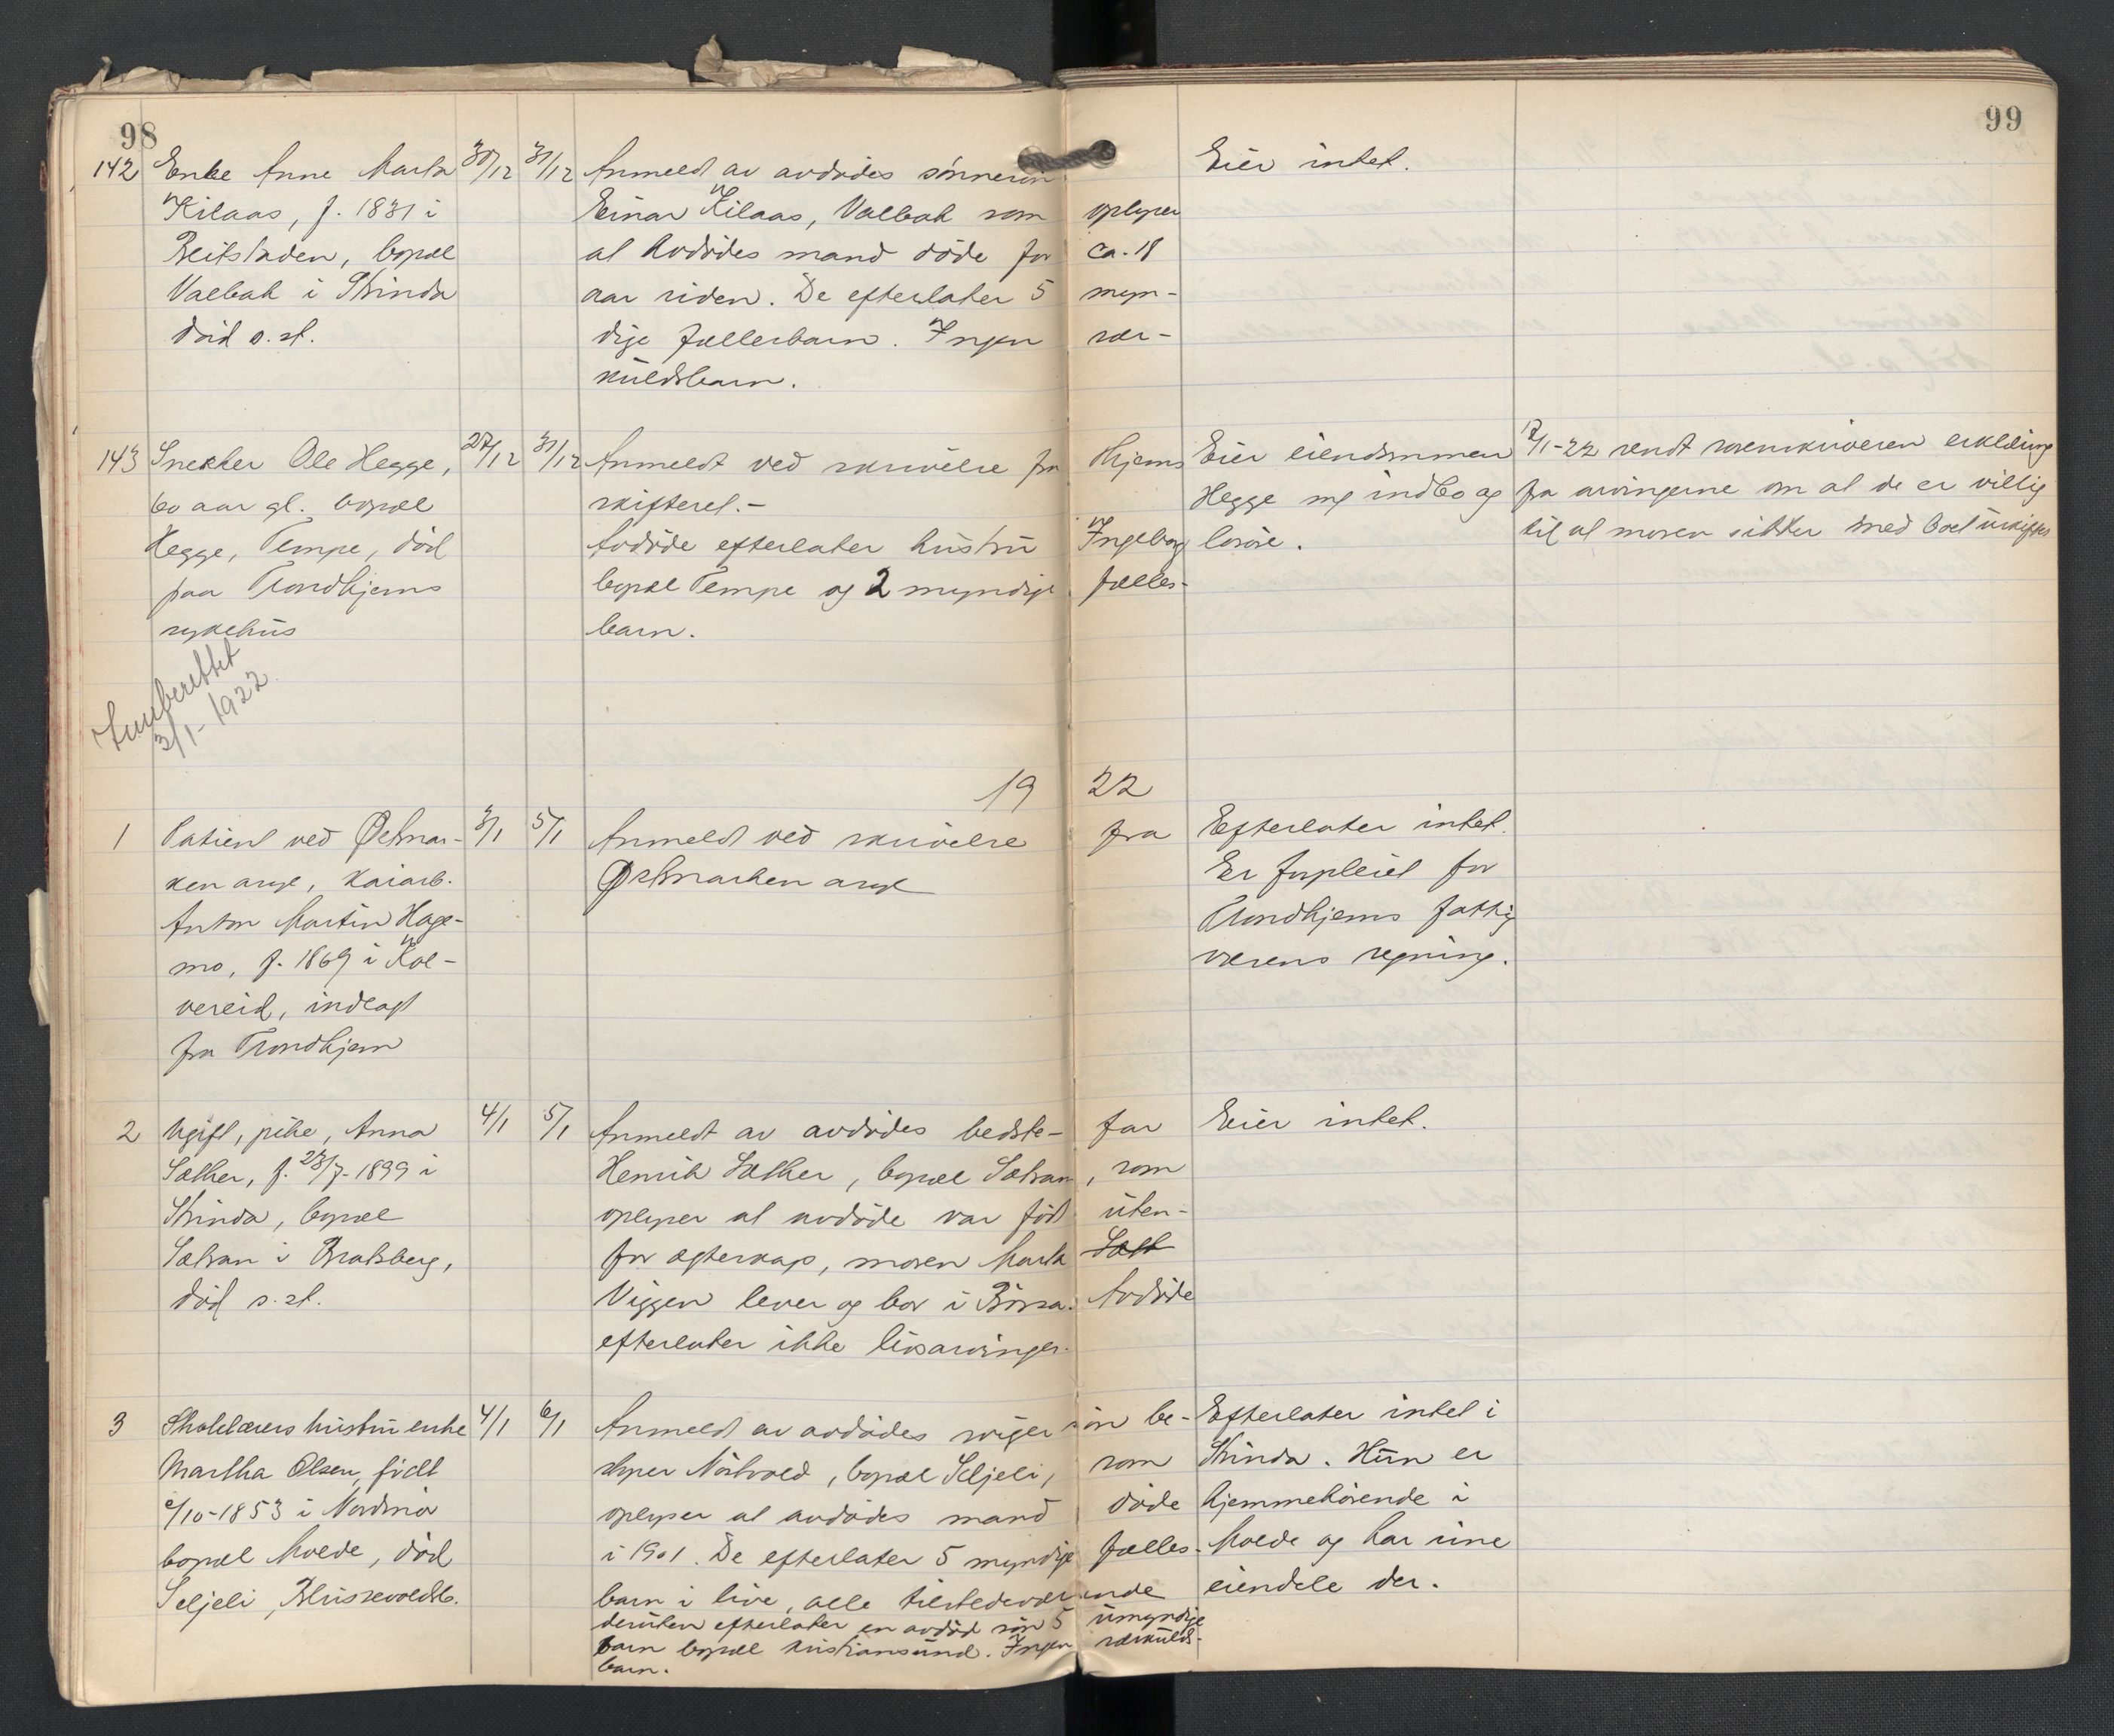 98
99
142 Enke Anne Marta 30/12 31/12 Anmeldt av avdødes sønnesøn Eier intet.
Kilaas, f. 1831 i Einar Kilaas, Valbak som oplyser
Beitstaden, bopæl at avdødes mand døde for ca. 18
Valbak i Strinda aar siden. De efterlater 5 myn-
død s.st. dige fællesbarn. Ingen sær-
kuldsbarn.
143 Snekker Ole Hegge, 27/12 31/12 Anmeldt ved skrivelse fra Hjems Eier eiendommen 17/1-22 sendt sorenskriveren erklæring
60 aar gl. bopæl skifteret.- Hegge og indbo og fra arvingerne om at de er villig
Hegge, Tempe, død Avdøde efterlater hustru Ingeborg løsøre. til at moren sitter med boet uskiftet
paa Trondhjems bopæl Tempe og 2 myndige fælles-
sykehus barn.
Innberettet
3/1-1922.
19 22
1 Patient ved Østmar- 3/1 5/1 Anmeldt ved skrivelse fra Efterlater intet.
ken asyl, kaiarb. Østmarken asyl Er forpleiet for
Anton Martin Hage- Trondhjems fattig
mo, f. 1869 i Kol- væsens regning.
vereid, indlagt
fra Trondhjem
2 Ugift, pike, Anna 4/1 5/1 Anmeldt av avdødes bedste- far Eier intet.
Sæther, f. 23/7-1899 i Henrik Sæther, bopæl Solvan, som
Strinda, bopæl oplyser at avdøde var født uten-
Solvan i Bratsberg, for ægteskap, moren Marta Sæth
død s.st. Viggen lever og bor i Børsa. Avdøde
efterlater ikke livsarvinger.
3 Skolelærers hustru enke 4/1 6/1 Anmeldt av avdødes svigersøn be- Efterlater intet i
Martha Olsen, født styrer Nøstvold, bopæl Seljeli, som Strinda. Hun er
/10-1853 i Nordmør oplyser at avdødes mand døde hjemmehørende i
bopæl Molde, død i 1901. De efterlater 5 myndige fælles- Molde og har sine
Seljeli, Blussevoldsb. barn i live, alle tilstedeværende eiendele der.
desuten efterlater en avdød søn 5 umyndige
barn bopæl Kristiansund. Ingen særkulds-
barn.